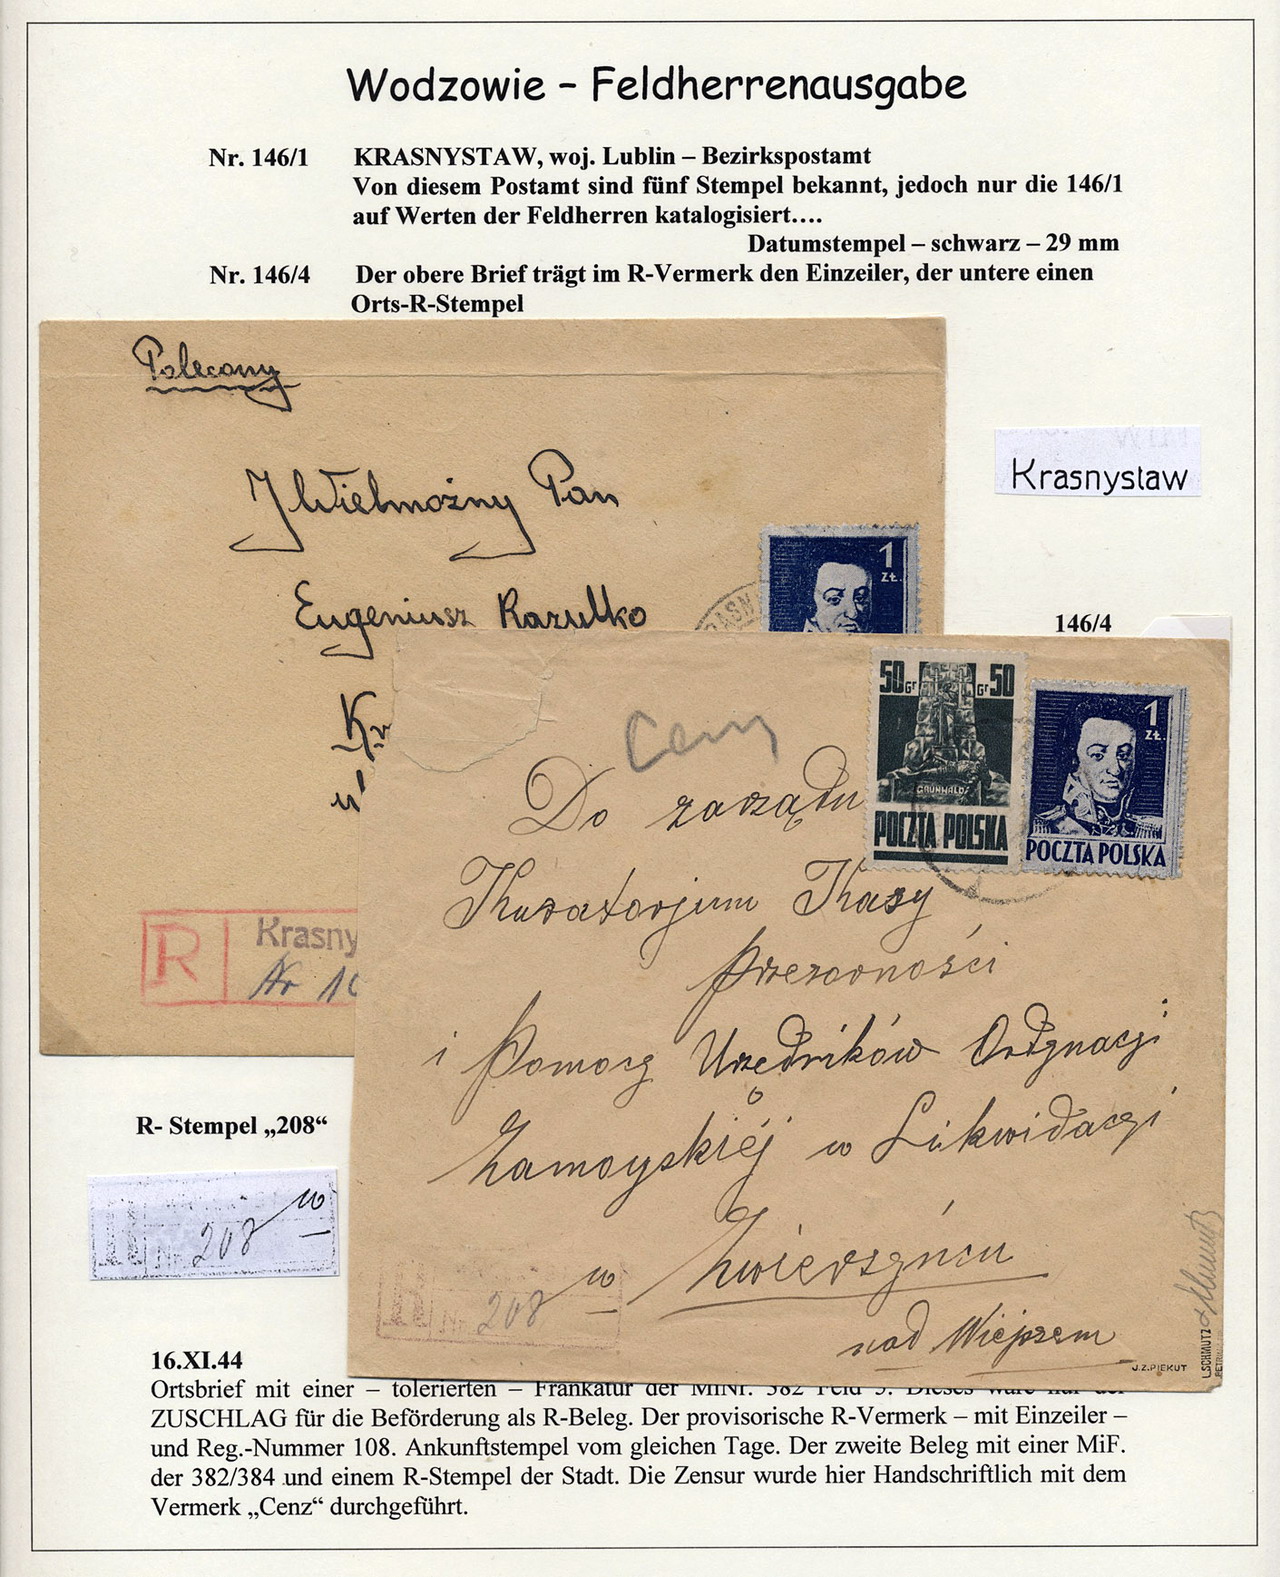 Wodzowie – Feldherrenausgabe
Nr. 146/1 KRASNYSTAW, woj. Lublin – Bezirkspostamt
Von diesem Postamt sind fünf Stempel bekannt, jedoch nur die 146/1
auf Werten der Feldherren katalogisiert….
Datumstempel – schwarz – 29 mm
Nr. 146/4 Der obere Brief trägt im R-Vermerk den Einzeiler, der untere einen
Orts-R-Stempel
Polecony
JWielmożny Pan
Eugeniusz Kazulko
Kr
w
1
ZŁ.
R
Krasny
Nr 10
Krasnystaw
146/4
Cenz
50 Gr Gr 50
GRUNWALD
POCZTA POLSKA
1
ZŁ.
POCZTA POLSKA
Do zarządu
Kuratorjum Kasy
Przezorności
i Pomocy Urzędników Ordynacji
Zamoyskiej w Likwidacji
w Zwierzyńcu
nad Wieprzem
R Nr. 208
J.Z.PIEKUT
L.SCHMUTZ
R- Stempel „208“
Nr. 208 w
16.XI.44
Ortsbrief mit einer – tolerierten – Frankatur der MiNr. 382 Feld 5. Dieses wäre nur der
ZUSCHLAG für die Beförderung als R-Beleg. Der provisorische R-Vermerk – mit Einzeiler –
und Reg.-Nummer 108. Ankunftstempel vom gleichen Tage. Der zweite Beleg mit einer MiF.
der 382/384 und einem R-Stempel der Stadt. Die Zensur wurde hier Handschriftlich mit dem
Vermerk „Cenz“ durchgeführt.